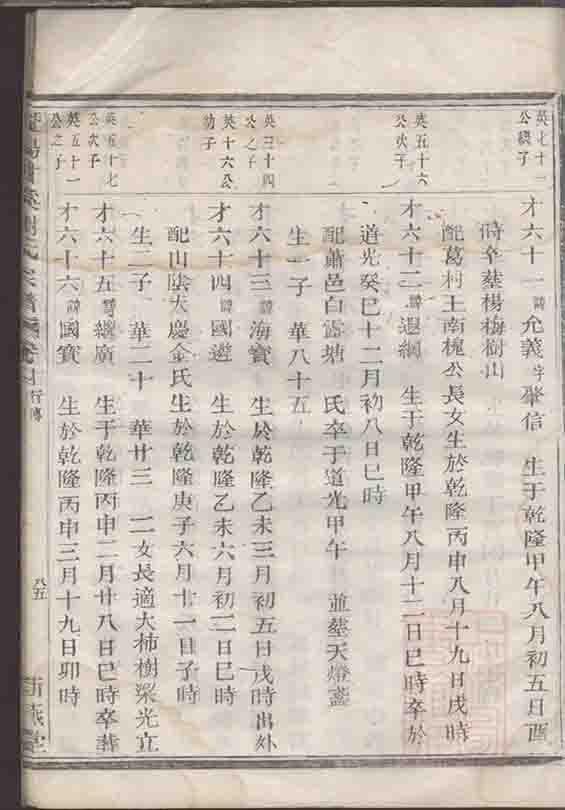 英七十一
公繼子
才六十一 諱允義 字肇信 生于乾隆甲午八月初五日酉
時卒塟楊梅樹山
配葛村王南槐公長女生於乾隆丙申八月十九日戌時
英五十六
公次子
才六十二 諱遐綱 生于乾隆甲午八月十二日巳時卒於
道光癸巳十二月初八日巳時
配蕭邑白露塘 氏卒于道光甲午 並塟天燈盞
生一子 華八十五
英三十四
公之子
才六十三 諱海寳 生於乾隆乙未三月初五日戌時出外
英十六公
幼子
才六十四 諱國遴 生於乾隆乙未六月初二日巳時
配山陰大慶金氏生於乾隆庚子六月十一日子時
生二子 華二十 華廿三 一女長適大柿樹梁光宜
英五十七
公次子
才六十五 諱繼廣 生于乾隆丙申二月廿八日巳時卒葬
英五十一
公之子
才六十六 諱國寳 生於乾隆丙申三月十九日卯時
氏宗譜
行傳
八五
堂